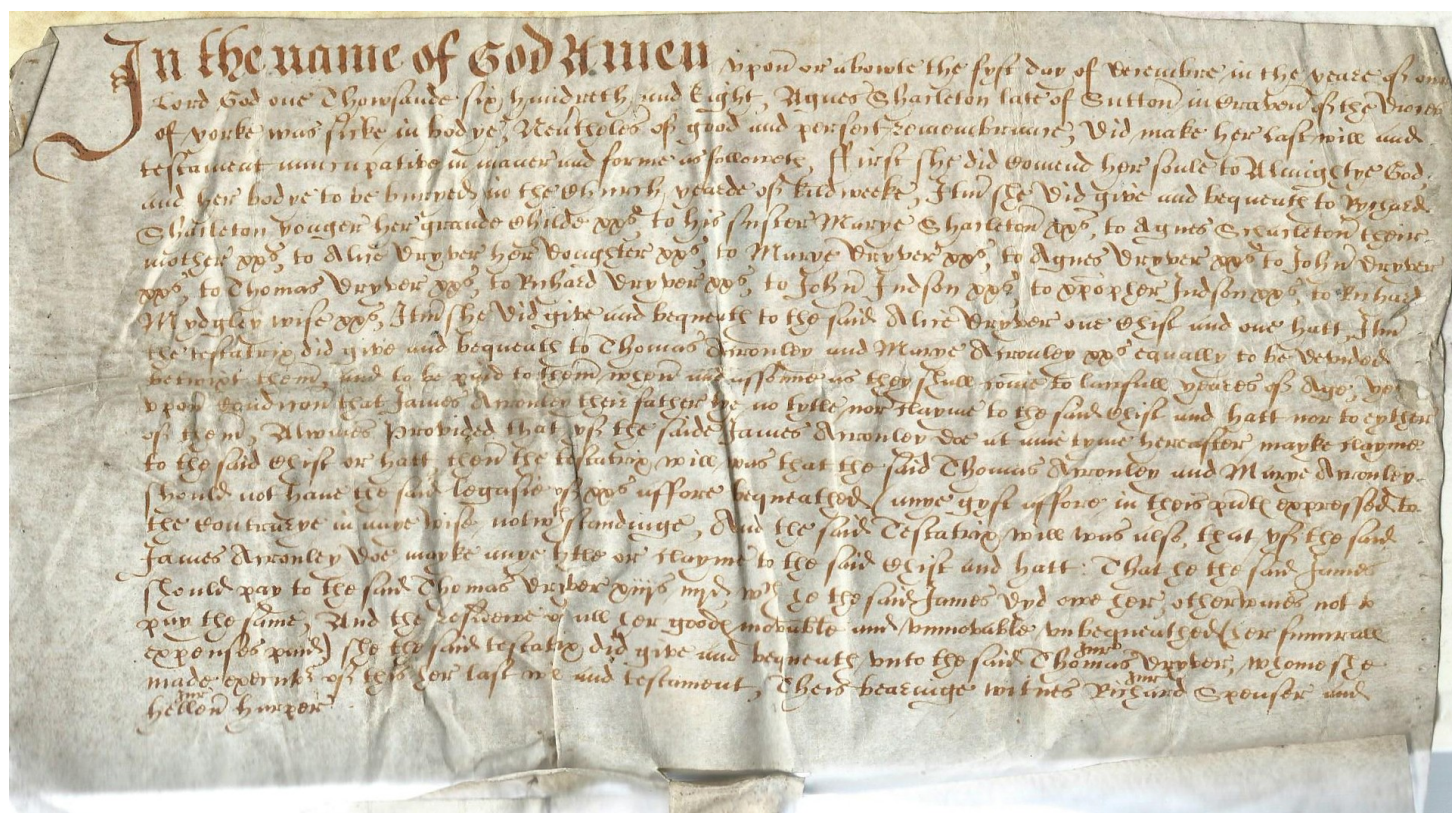 In the name of God Amen vpon or abowte the fyst day of decembre in the yeare of our
Lord God one Thowsande six hundreth and Eight, Agnes Sharleton late of Sutton in Craven of the
of yorke was sicke in bodye, Neutheles of good and perfect remembrance, Did make her last will and
testament nuncupative in maner and forme as followeth, ffirst she did Comend her soule to Almightye God,
and her bodye to be buryed in the Church yearde of Kildweeke, Itm she did give and bequeath to Rychard
Sharleton yonger her grande Childe xxs, to his suster Marye Sharleton xxs, to Agnes Scharleton their
mother xxs, to Alice Dryver her Doughter xxs, to Marye Dryver xxs, to Agnes Dryver xxs to John Dryver
xxs, to Thomas Dryver xxs, to Richard Dryver xxs, to John Judson xxs, to xpopher Judson xxs, to Richard
Mydgley wife xxs, Itm she did give and bequeath to the said Alice Dryver one Chist and one hatt, Itm
the testatrix did give and bequeath to Thomas and Marye xxs equally to be devided
betwixt them, and to be paid to them when and assone as they shall come to lawfull yeares of Age, yf
vpon Condicon that James their father no tytle nor clayme to the said Chist and hatt nor to eyther
of them, Alwaies Provided that yf the saide James doe at anie tyme hereafter mayke clayme
to the said Chist or hatt, then the testatrix will was that the said Thomas and Marye
should not have the said legasie of xxs affore bequeathed (anye gyft affore in theis pnts expressed to
the Contrarye in anye wise notwthstandinge, And the said Testatrix will was also, that yf the said
James doe mayke anye title or clayme to the said Chist and hatt: That he the said James
should pay to the said Thomas Dryver xiijs iiijd wch he the said James dyd owe her, otherwaies not to
pay the same, And the residewe of all her goods movable and vnmovable vnbequeathed (her funerall
expenses paid) she the said testatrix did give and bequeath vnto the said Thomas Dryver, whome she
made executor of this her last will and testament, Theis bearinge witnes Richard Spenser and
hellen harper